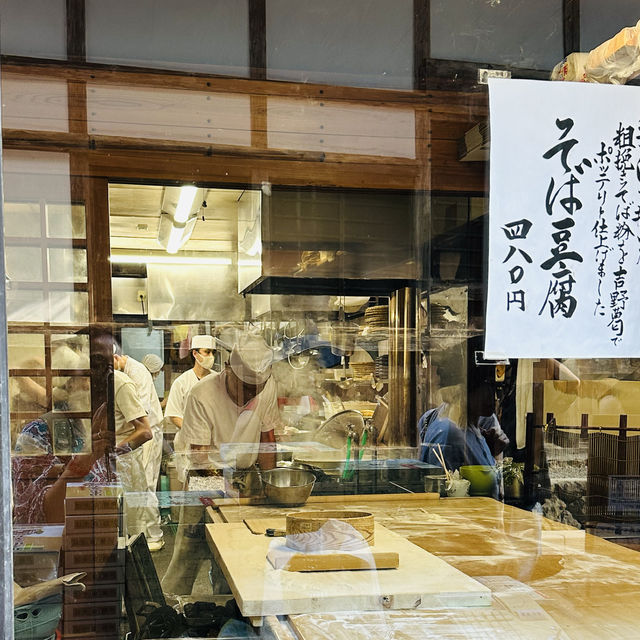 粗挽きそば粉を吉野葛で
ポッテリと仕上げました
そば豆腐
四八〇円